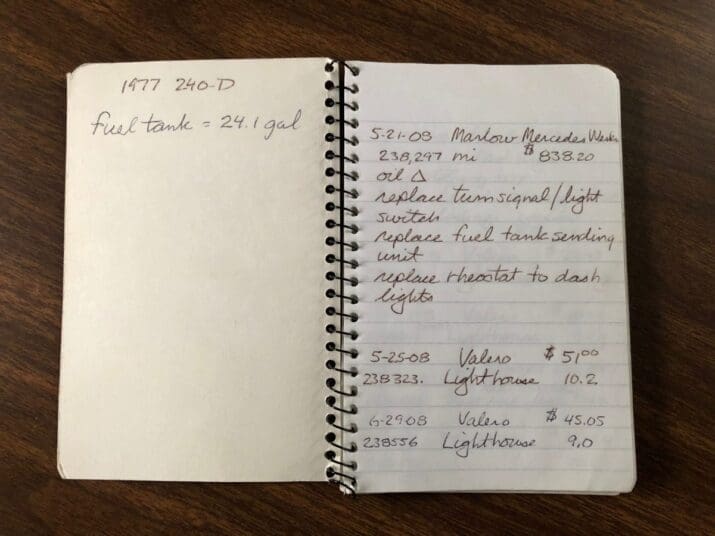 1977 240-D
fuel tank = 24.1 gal
5-21-08 Marlow Mercedes Werks
238,297 mi $838.20
oil Δ
replace turn signal/light
switch
replace fuel tank sending
unit
replace rheostat to dash
lights
5-25-08 Valero $51.00
238323. Lighthouse 10.2
6-29-08 Valero $45.05
238556 Lighthouse 9.0